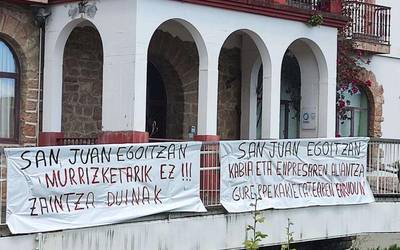 SAN JUAN EGOITZAN
MURRIZKETARIK EZ !!!
ZAINTZA DUINAK
SAN JUAN EGOITZAN
KABIA ETA ENPRESAREN ALIANTZA
GURE PREKARIETATEAREN ERRUDUN